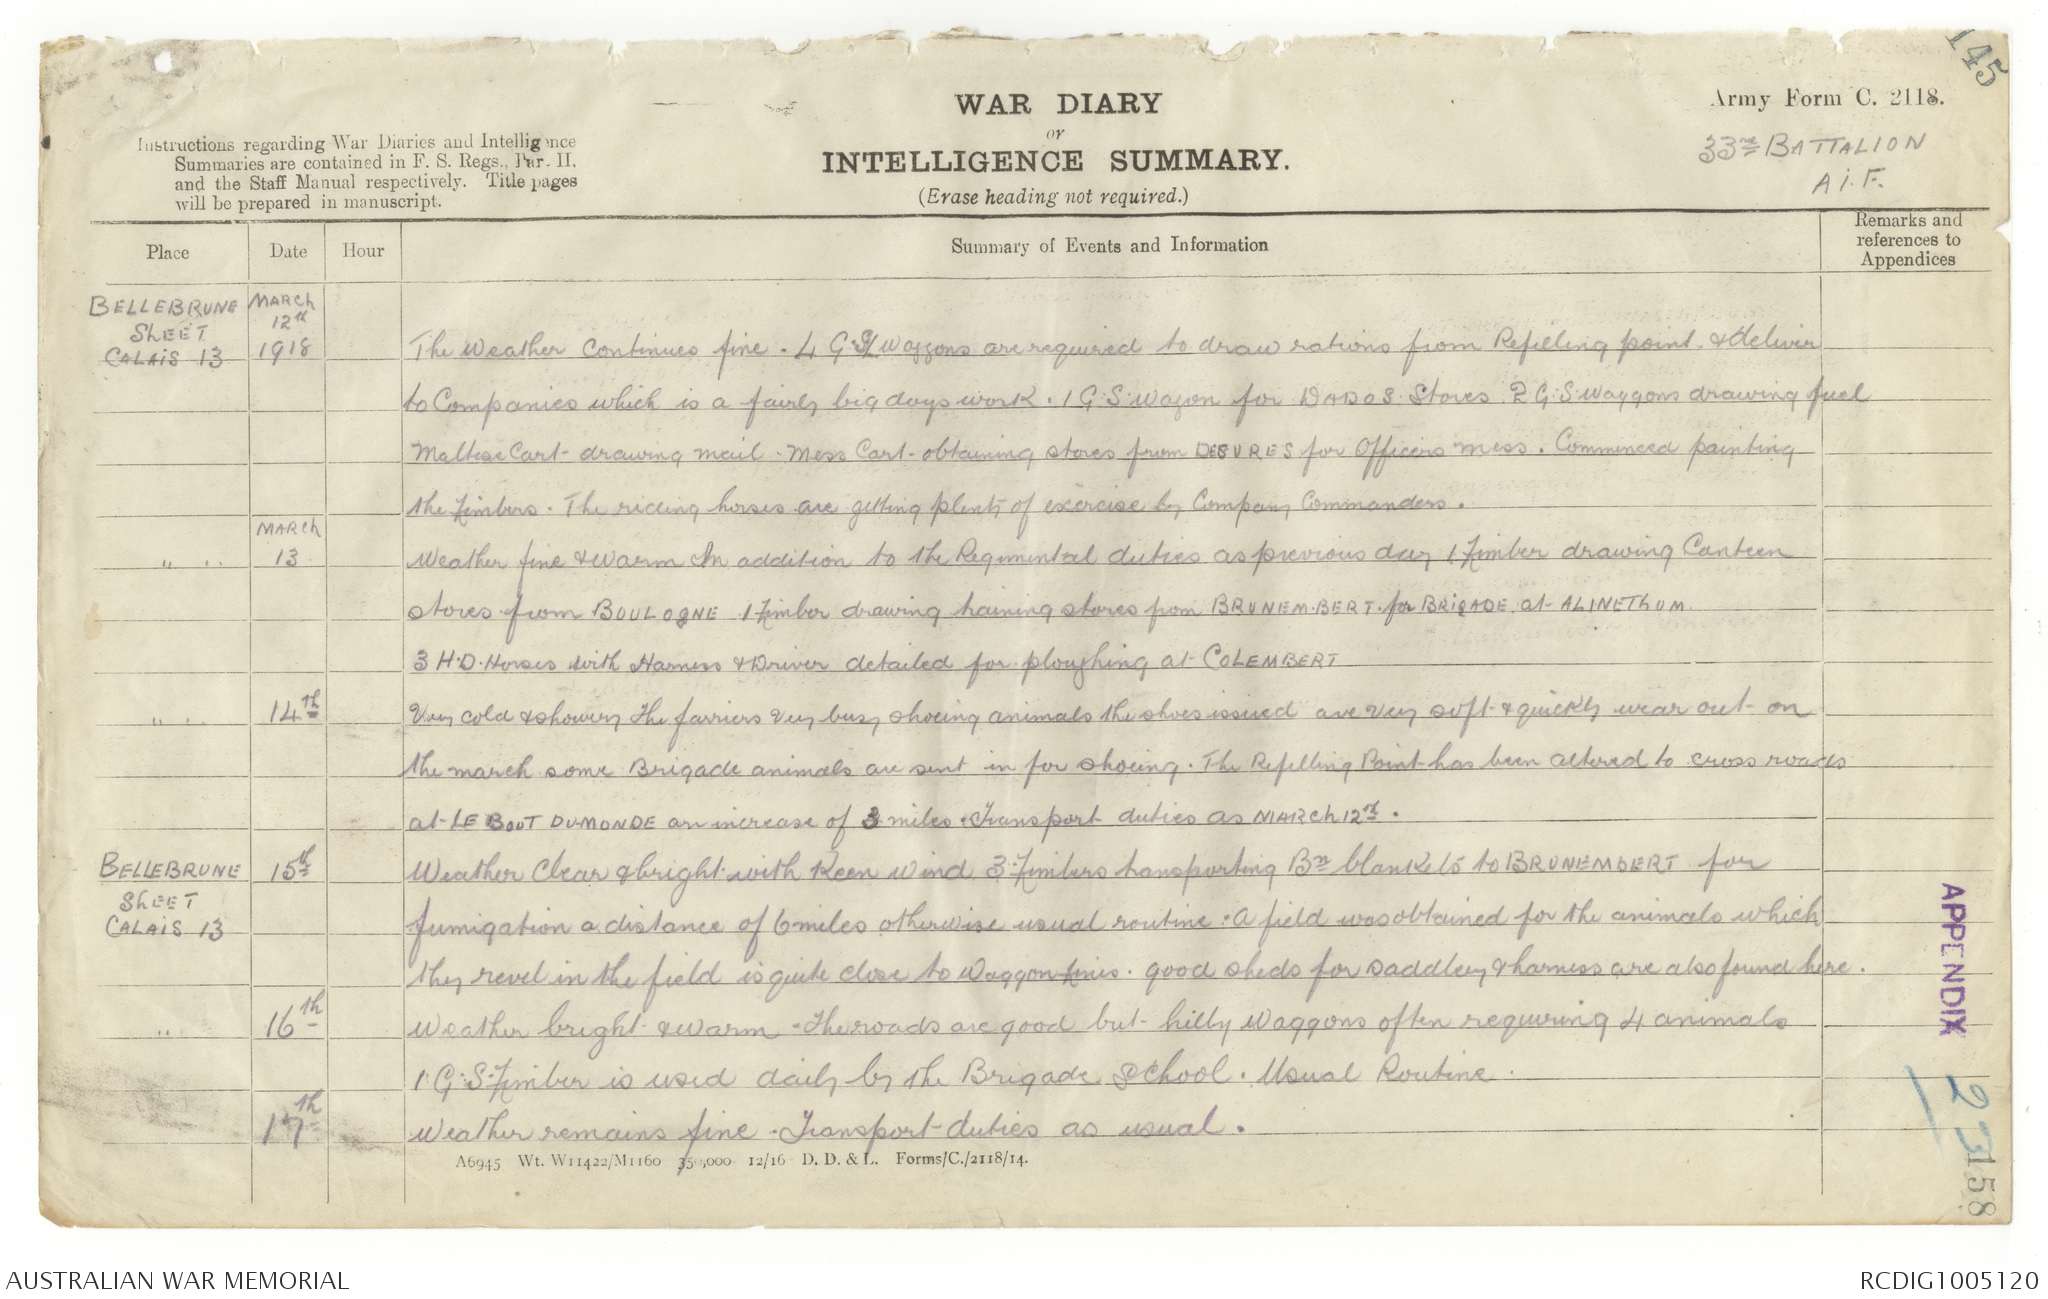 145
Army Form C. 2118.
WAR DIARY
or
INTELLIGENCE SUMMARY.
(Erase heading not required.)
Instructions regarding War Diaries and Intelligence
Summaries are contained in F. S. Regs., Par. II.
and the Staff Manual respectively. Title pages
will be prepared in manuscript.
33rd BATTALION
A.I.F.
Place Date Hour Summary of Events and Information Remarks and references to Appendices
BELLEBRUNE MARCH
SHEET 12th
CALAIS 13 1918 The Weather Continues fine. 4 G.S. Waggons are required to draw rations from Refilling point & deliver
to Companies which is a fairly big days work. 1 G.S. Wagon for DADOS Stores. 2 G.S. Waggons drawing fuel
Maltese Cart - drawing mail. Mess Cart - obtaining stores from DESURES for Officers mess. Commenced painting
the Limbers. The riding horses are getting plenty of exercise by Company Commanders.
MARCH
" " 13 Weather fine & warm In addition to the Regimental duties as previous day 1 Limber drawing Canteen
stores from BOULOGNE 1 Limber drawing training stores from BRUNEMBERT for BRIGADE at ALINETHUM
3 H.D. Horses with Harness & Driver detailed for ploughing at COLEMBERT
" " 14th Very cold & showery The farriers very busy shoeing animals the shoes issued are very soft & quickly wear out on
the march some Brigade animals are sent in for shoeing. The Refilling Point has been altered to cross roads
at LE BOUT DU MONDE an increase of 3 miles. Transport duties as MARCH 12th.
BELLEBRUNE 15th Weather Clear & bright with Keen Wind 3 Limbers transporting Bn blankets to BRUNEMBERT for
SHEET
CALAIS 13 fumigation a distance of 6 miles otherwise usual routine. A field was obtained for the animals which
they revel in the field is quite close to Waggon Lines. good sheds for saddlery & harness are also found here.
" 16th Weather bright & warm - The roads are good but hilly Waggons often requiring 4 animals
1 G.S. Limber is used daily by the Brigade School. Usual Routine.
17th Weather remains fine. Transport duties as usual.
A6945 Wt. W11422/M1160 350,000 12/16 D. D. & L. Forms/C./2118/14.
APPENDIX 23
158
AUSTRALIAN WAR MEMORIAL
RCDIG1005120